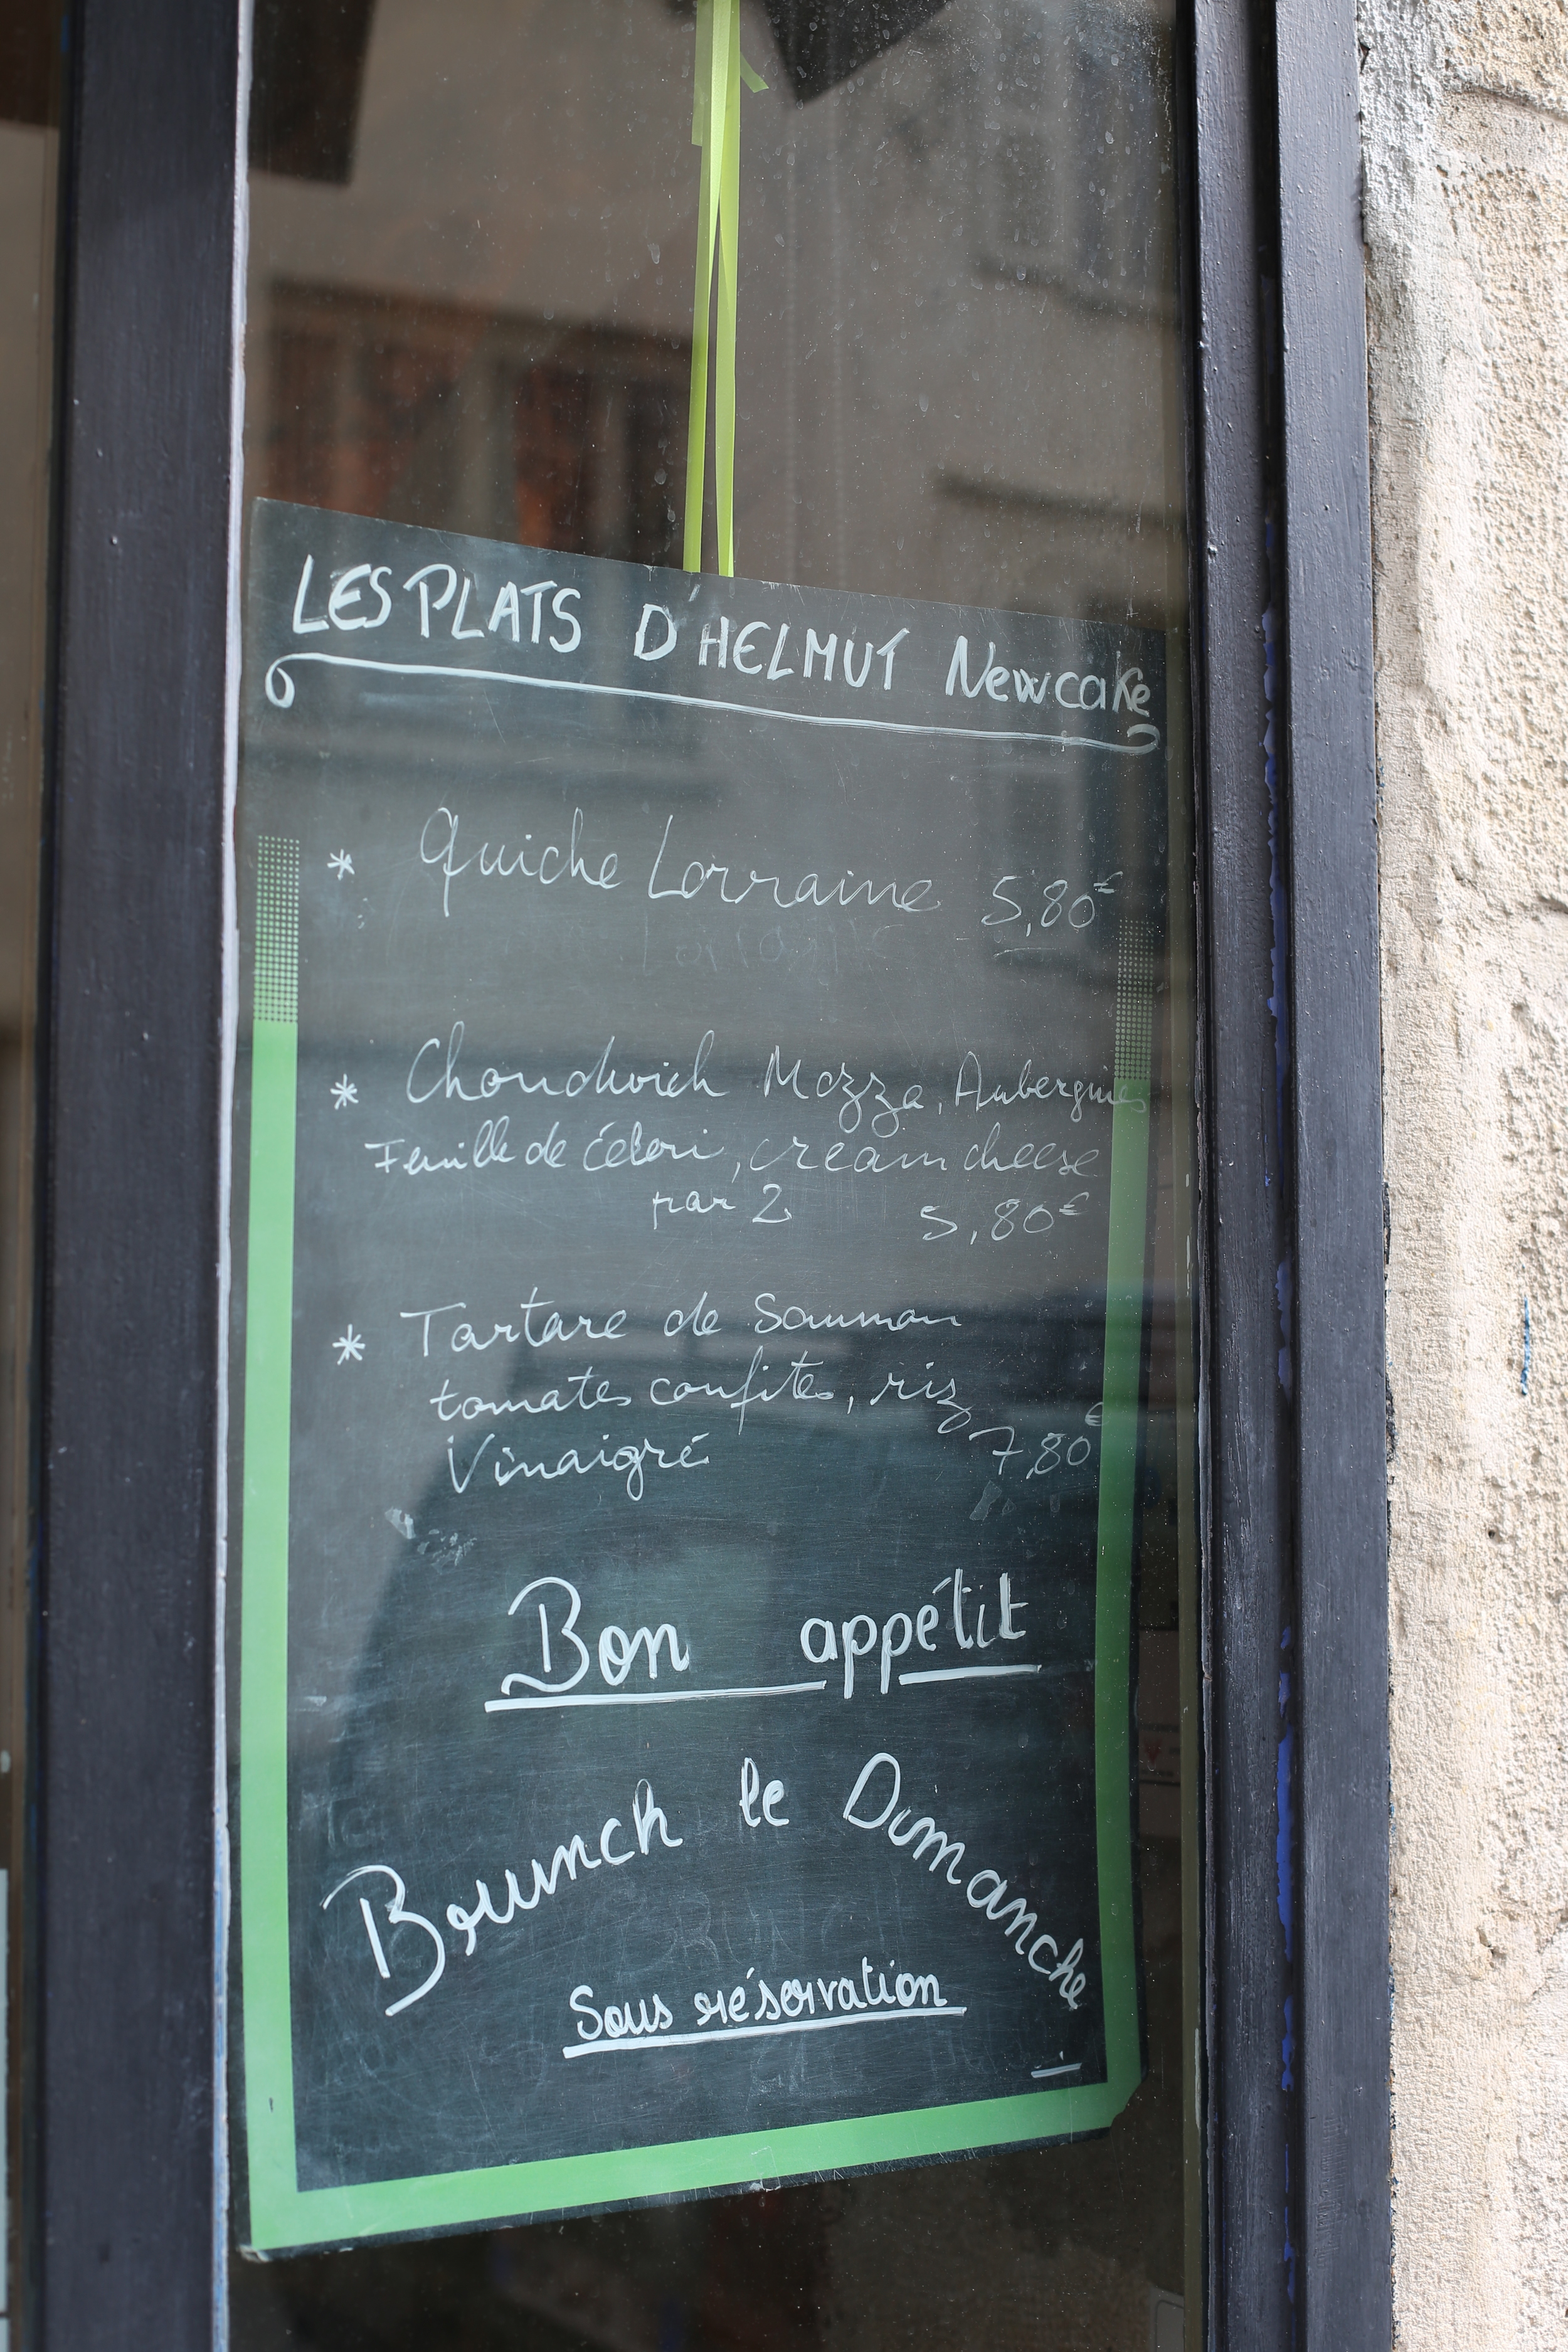 LES PLATS D'HELMUT Newcake
* Quiche Lorraine 5,80€
* Choudwich Mozza, Aubergines
Feuille de Céleri, cream cheese
par 2 5,80€
* Tartare de Saumon
tomates confites, riz
Vinaigré 7,80€
Bon appétit
Brunch le Dimanche
Sous réservation